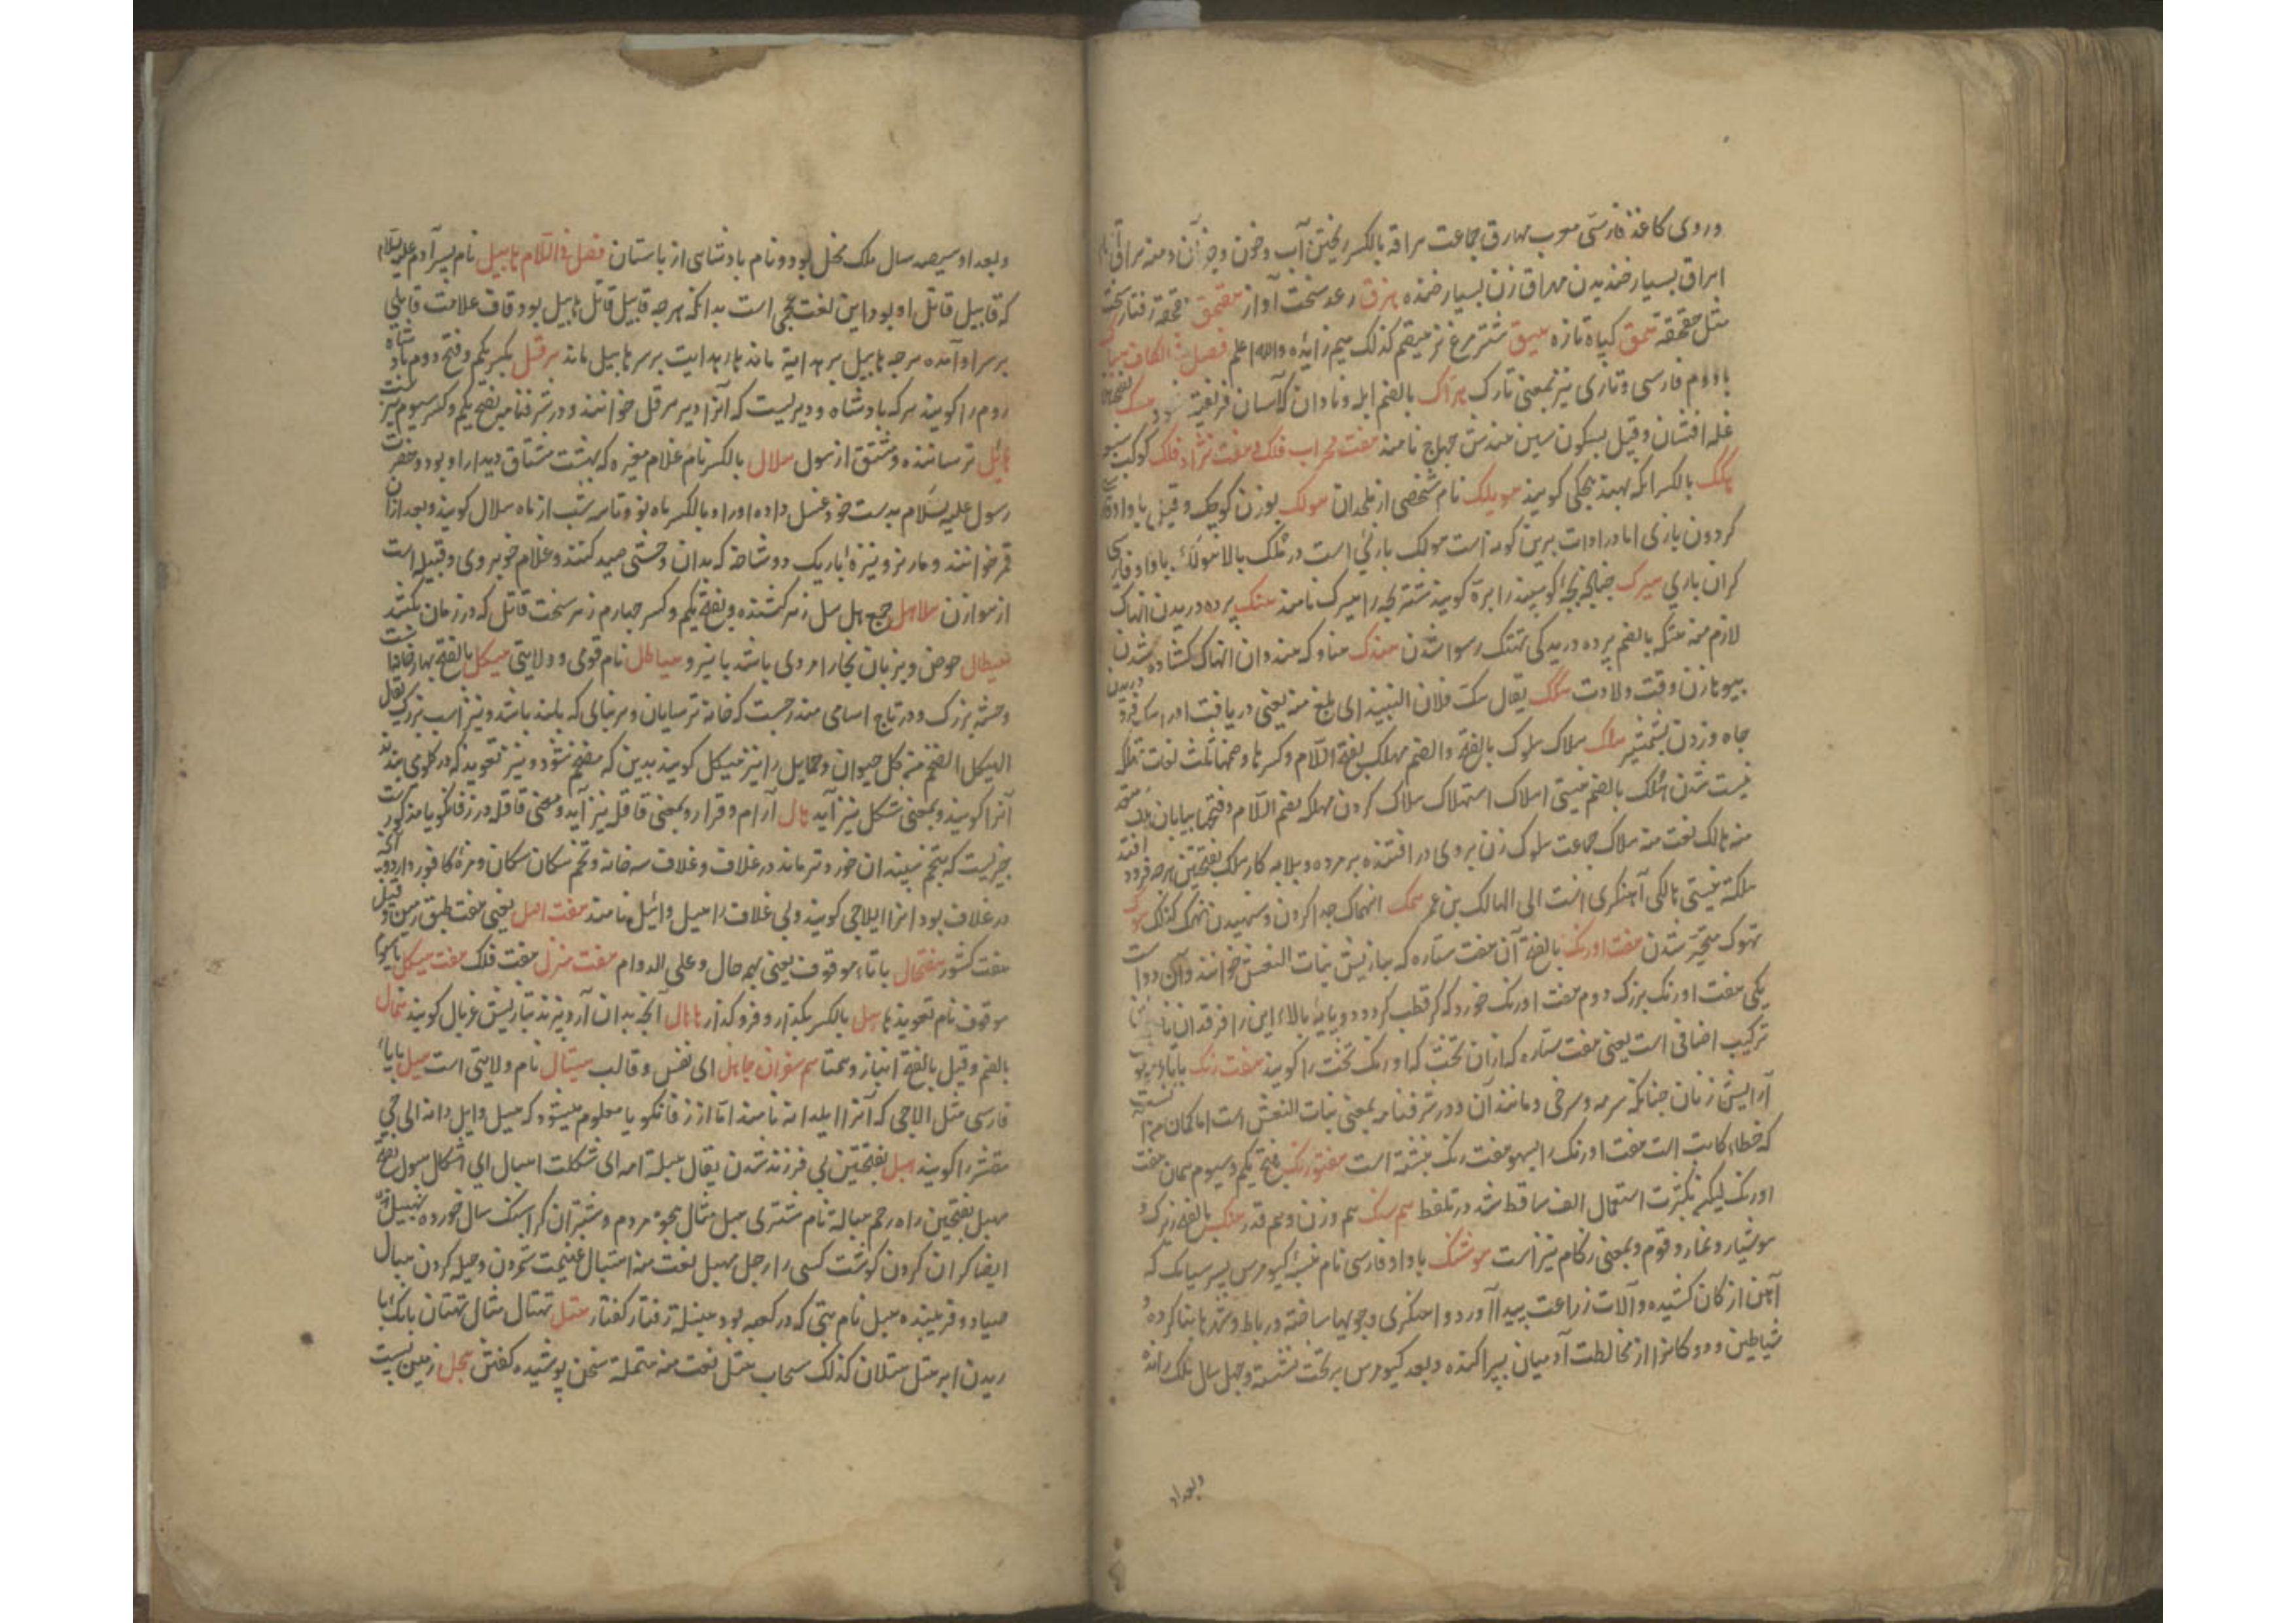 و روی کاغذ فارسی معرب مهارق جماعت هراقه بالکسر ریختن آب و خون و جز آن و منه هراق
اهراق بسیار خندیدن مهراق زن بسیار خنده هزق رعد سخت آواز هقهق
مثل حقحقه همق کیاه تازه هیق شتر مرغ نر هیقم کذلک میم زائده والله اعلم فصل فی الکاف
با دوم فارسی و تازی نیز بمعنی تارک هزاک بالضم ابله و نادان که آسان فریفته شود هسک
غله افشان و قیل بسکون سین هندش چهاج نامند هفت محراب فلک و هفت نژاد فلک کوکب
هکک بالکسر آنکه بهند هچکی کویند هویلک نام شخصی از ملحدان هولک بوزن کوچک و قیل با واو
کردون بازی اما در ادات برین کونه است هولک بازئی است در تلک بالا هولک با واو فارسی
کران بازی هیرک چنانچه بچه کوسپند را بره کویند شتر بچه را هیرک نامند هتک پرده دریدن انهتاک
لازم منه هتکه بالضم پرده دریدکی تهتک رسوا شدن هندک هناوکه هندوان انهتاک کشاده شدن
پیوهازن وقت ولادت هکک یقال هک فلان النبیذ ای بلغ منه یعنی دریافت او را
چاه و زدن بشمشیر هلک هلاک هلوک بالفتح والضم مهلک بفتح اللام و کسرها و ضمها ثلث لغت تهلکه
نیست شدن هلک بالضم نیستی اهلاک استهلاک هلاک کردن مهلکه بضم اللام و فتحها بیابان
منه هالک نعت منه هلاک جماعت هلوک زن بر وی در افتنده بر مرد و بلابه کار هلک بفتحتین هرچه فرود افتد
هلکة نیستی هالکی آهنکری انست الی الهالک بن عمر همک انهماک جد کردن و ستهیدن تهمک کذلک هوک
تهوک متحیر شدن هفت اورنک بالفتح آن هفت ستاره که بتازیش بنات النعش خوانند و آن دو است
یکی هفت اورنک بزرک دوم هفت اورنک خورد که کرد قطب کردد و دو پایه بالا این را فرقدان
ترکیب اضافی است یعنی هفت ستاره که از آن تخت که اورنک تخت را کویند هفت رنک
آرایش زنان چنانکه سرمه و سرخی و مانند آن و در شرفنامه بمعنی بنات النعش است اما کمان
که خطاء کاتب است هفت اورنک را بسهو هفت رنک نبشته است هفتورنک بفتح یکم و سیوم همان هفت
اورنک لیکن بکثرت استعمال الف ساقط شد در تلفظ هم سنک هم وزن و هم قدر هنک بالفتح زیرک و
هوشیار و غار و قوم و بمعنی زکام نیز است هوشنک با واو فارسی نام نبسه کیومرس پسر سیامک که
آهن از کان کشیده و آلات زراعت پیدا آورد و آهنکری و جویها ساخته و رباط و شهرها بنا کرده و
شیاطین و دد و کانرا از مخالطت آدمیان پیرا کنده و بعد کیومرس بر تخت نشسته و چهل سال ملک رانده
و بعد او
و بعد او سیصد سال ملک مختل بود و نام بادشاهی از باستان فصل فی اللام هابیل نام پسر آدم علیه السلام
که قابیل قاتل او بود این لغت عجمی است بدانکه هرچه قابیل قاتل هابیل بود قاف علامت قابلی
بر سر او آمده هرچه هابیل بر هدایة ماند ها هدایت بر سر هابیل ماند هرقل بکسر یکم و فتح دوم بادشاه
روم را کویند هر که بادشاه و دیریست که آنرا دیر هرقل خوانند و در شرفنامه بفتح یکم و کسر سیوم نیز
هائل ترساننده و مشتق از هول هلال بالکسر نام غلام مغیره که بهشت مشتاق دیدار او بود و حضرت
رسول علیه السلام بدست خود غسل داده او را و بالکسر ماه نو و تا سه شب از ماه هلال کویند و بعد ازان
قمر خوانند و مار نر و نیزه باریک دو شاخه که بدان وحشی صید کنند و غلام خوبروی و قبیله است
از هوازن هلاهل جمع هلهل زهر کشنده و بفتح یکم و کسر چهارم زهر سخت قاتل که در زمان بکشد
هیطال حوض و بزبان بخارا مردی باشد با نیرو هیاطل نام قومی و ولایتی هیکل بالفتح بهارخانه
و جثه بزرک و در تاج اسامی مندرجست که خانه ترسایان و هر بنائی که بلند باشد و نیز اسب بزرک یقال
الهیکل الضخم من کل حیوان و حمایل را نیز هیکل کویند بدین که ضخم شود و نیز تعویذ که در کلوی بندند
آنرا کویند و بمعنی شکل نیز آید هال آرام و قرار و بمعنی قاقله نیز آید و معنی قاقله در زفانکویا مذکورست
چیزیست که بتخم سپندان خورد و تر ماند در غلاف و غلاف سه خانه و تخم سکان سکان و مزه کافور دارد
در غلاف بود آنرا ایلاجی کویند و بی غلاف را هیل و ائیل نامند هفت اهل یعنی هفت طبق زمین و قیل
هفت کشور هفتحال با تاء موقوف یعنی بهمه حال و علی الدوام هفت منزل هفت فلک هفت هیکل
موقوف نام تعویذها هل بالکسر بکذار و فرو کذار هالال آنچه بدان آرد بیزند بتازیش غربال کویند همال
بالضم و قیل بالفتح انباز و همتا هم سفران جاهل ای نفس و قالب هیتال نام ولایتی است هیل با یاء
فارسی مثل الاجی که آنرا ایلدانه نامند اما از زفانکویا معلوم میشود که هیل و ایل دانه الی جی
مقشر را کویند هبل بفتحتین بی فرزند شدن یقال هبلته امه ای ثکلت اهبال ای اثکال هبول بفتح
مهبل بفتحتین راه رحم هباله نام شتری هبل مثال هجو مردم و شتران کران سنک سال خورده تهبیل
ایضا کران کردن کوشت کسی را رجل مهبل نعت منه اهتبال غنیمت شمردن و حیله کردن هبال
صیاد و فریبنده هبل نام بتی که در کعبه بود هبلة رفتار کفتار هتل تهتال مثال تهتان
ریدن ابر هتل هتلان کذلک سحاب هتل نعت منه هتملة سخن پوشیده کفتن هجل زمین پست